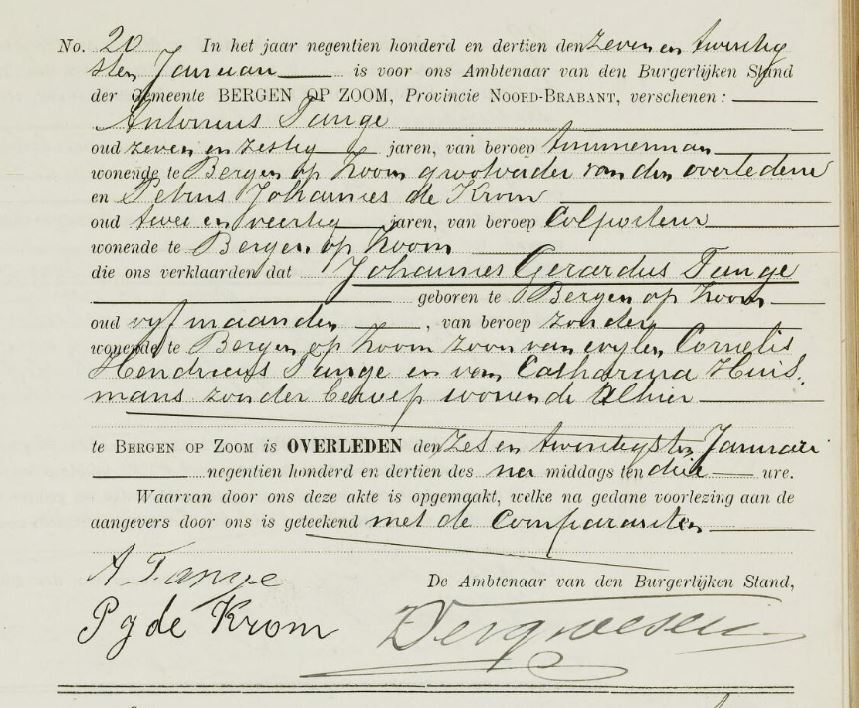 No. 20 In het jaar negentien honderd en dertien den zeven en twintig
sten Januari is voor ons Ambtenaar van den Burgerlijken Stand
der Gemeente BERGEN OP ZOOM, Provincie NOORD-BRABANT, verschenen:
Antonius Tange
oud zeven en zestig jaren, van beroep timmerman
wonende te Bergen op Zoom grootvader van den overledene
en Petrus Johannes de Krom
oud twee en veertig jaren, van beroep Colporteur
wonende te Bergen op Zoom
die ons verklaarden dat Johannes Gerardus Tange
geboren te Bergen op Zoom
oud vyf maanden, van beroep zonder
wonende te Bergen op Zoom zoon van wylen Cornelis
Hendricus Tange en van Catharina Huis
mans zonder beroep wonende Alhier
te BERGEN OP ZOOM is OVERLEDEN den zes en twintigsten Januari
negentien honderd en dertien des na middags ten drie ure.
Waarvan door ons deze akte is opgemaakt, welke na gedane voorlezing aan de
aangevers door ons is geteekend met de Comparanten
A. Tange
De Ambtenaar van den Burgerlijken Stand,
P J de Krom